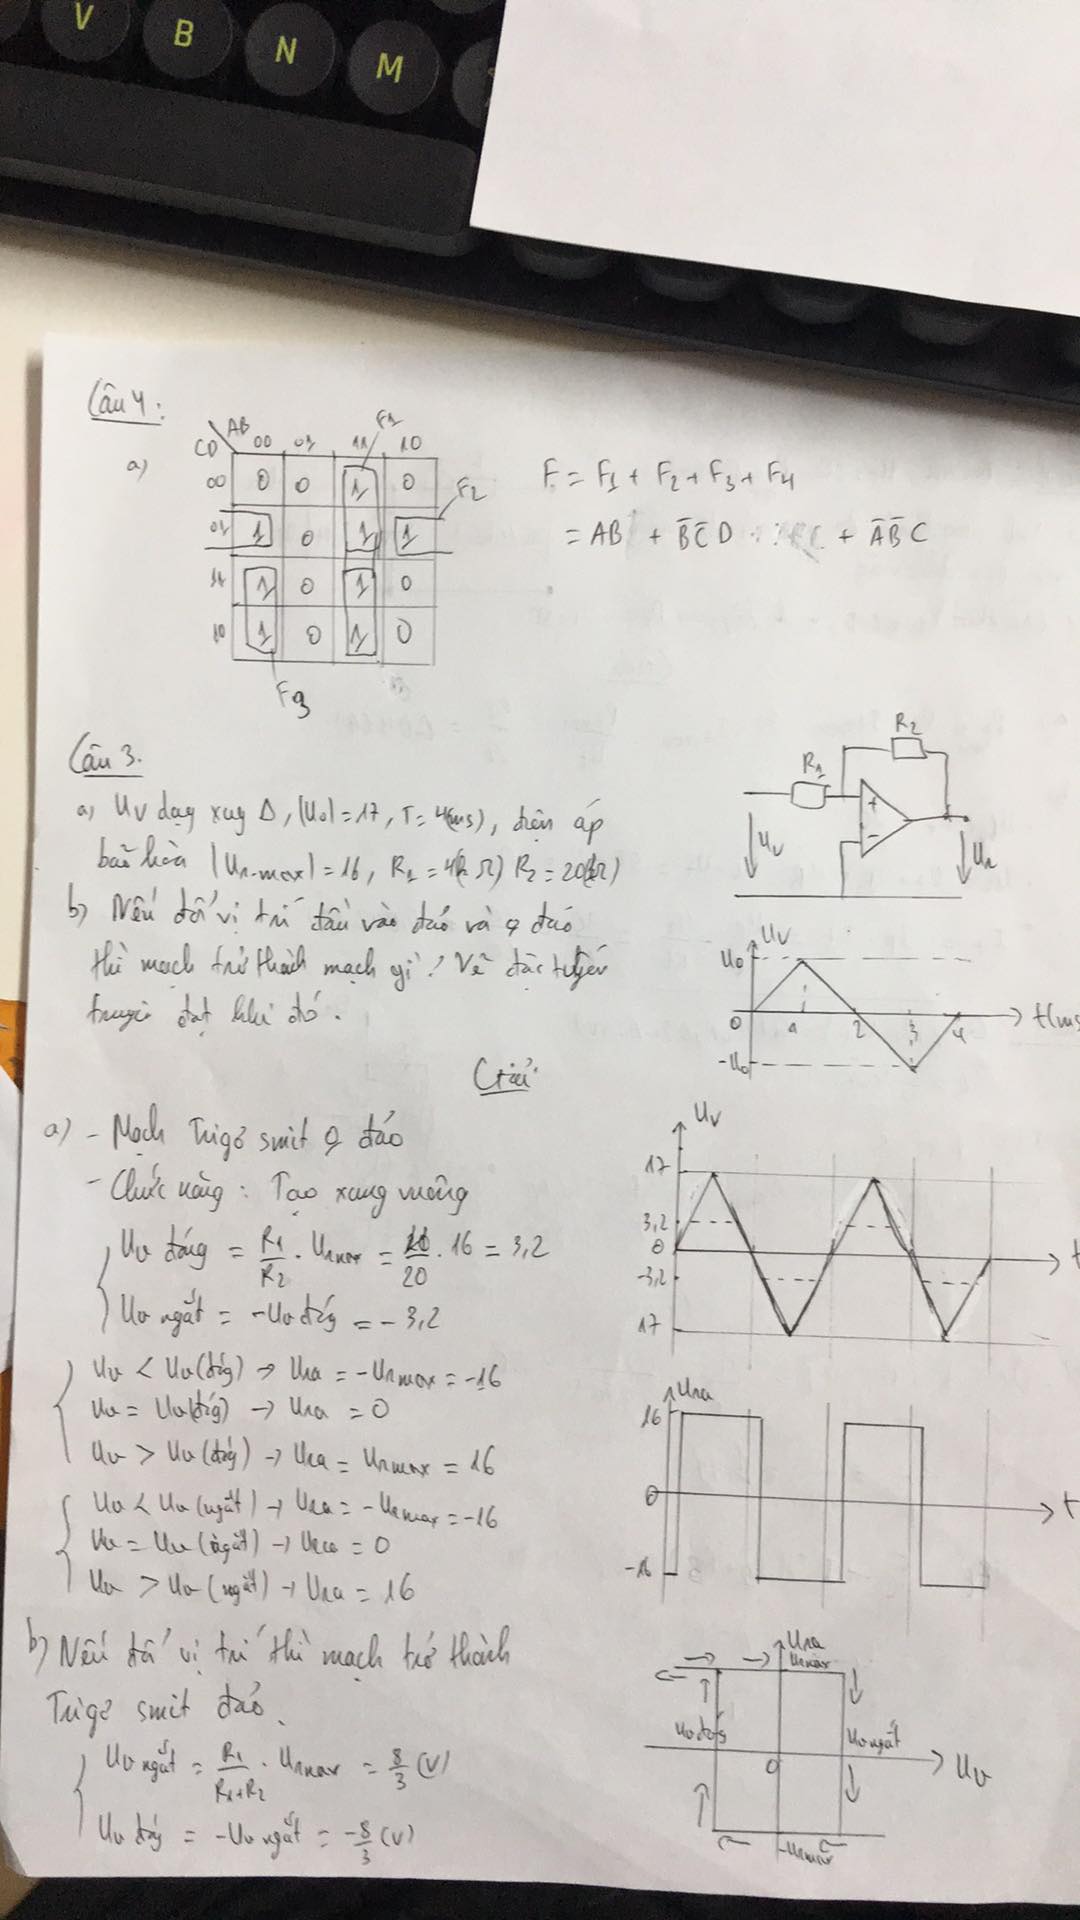 V B N M
Câu 4:
a)
AB
CD
00 01 11 10
F1
00 0 0 1 0
F2
01 1 0 1 1
11 1 0 1 0
10 1 0 1 0
F3
F = F1 + F2 + F3 + F4
= AB + B̅C̅D + A̅B̅C
Câu 3.
a) Uv dạng xung Δ, |U0| = 17, T = 4(ms), điện áp
bão hòa |Ur.max| = 16, R1 = 4(kΩ) R2 = 20(kΩ)
b) Nếu đổi vị trí đầu vào đảo và ko đảo
thì mạch trở thành mạch gì? Vẽ đặc tuyến
truyền đạt khi đó.
R1
R2
+
-
Uv
Ur
Uv
U0
0 1 2 3 4 t(ms
-U0
Giải
a) - Mạch Trigơ smit ko đảo
- Chức năng: Tạo xung vuông
Uv đóng = R1/R2 . Urmax = /20 . 16 = 3,2
Uv ngắt = -Uv đóng = -3,2
Uv < Uv(đóng) → Ura = -Urmax = -16
Uv = Uv(đóng) → Ura = 0
Uv > Uv(đóng) → Ura = Urmax = 16
Uv < Uv(ngắt) → Ura = -Urmax = -16
Uv = Uv(ngắt) → Ura = 0
Uv > Uv(ngắt) → Ura = 16
Uv
17
3,2
0
-3,2
17
t
Ura
16
0
-16
t
b) Nếu đổi vị trí thì mạch trở thành
Trigơ smit đảo.
Uv ngắt = R1/R1+R2 . Urmax = 8/3 (V)
Uv đóng = -Uv ngắt = -8/3 (V)
Ura
Urmax
Uv đóng
Uv ngắt
0
Uv
-Urmax